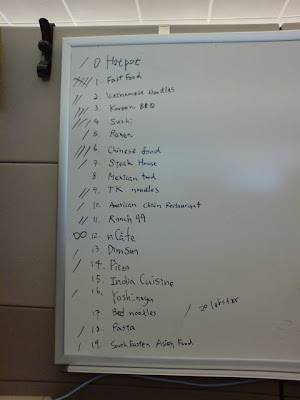 0 Hotpot
1. Fast Food
2. Vietnamese Noodles
3. Korean BBQ
4. Sushi
5. Ramen
6. Chinese food
7. Steak House
8 Mexican food
9. TK noodles
10. American Chain Restaurant
11. Ranch 99
12. n Cafe
13. Dim Sun
14. Pizza
15. India Cuisine
16. Yoshi
17. Beef noodles
18. Pasta
19. South Eastern Asian Food
lobster